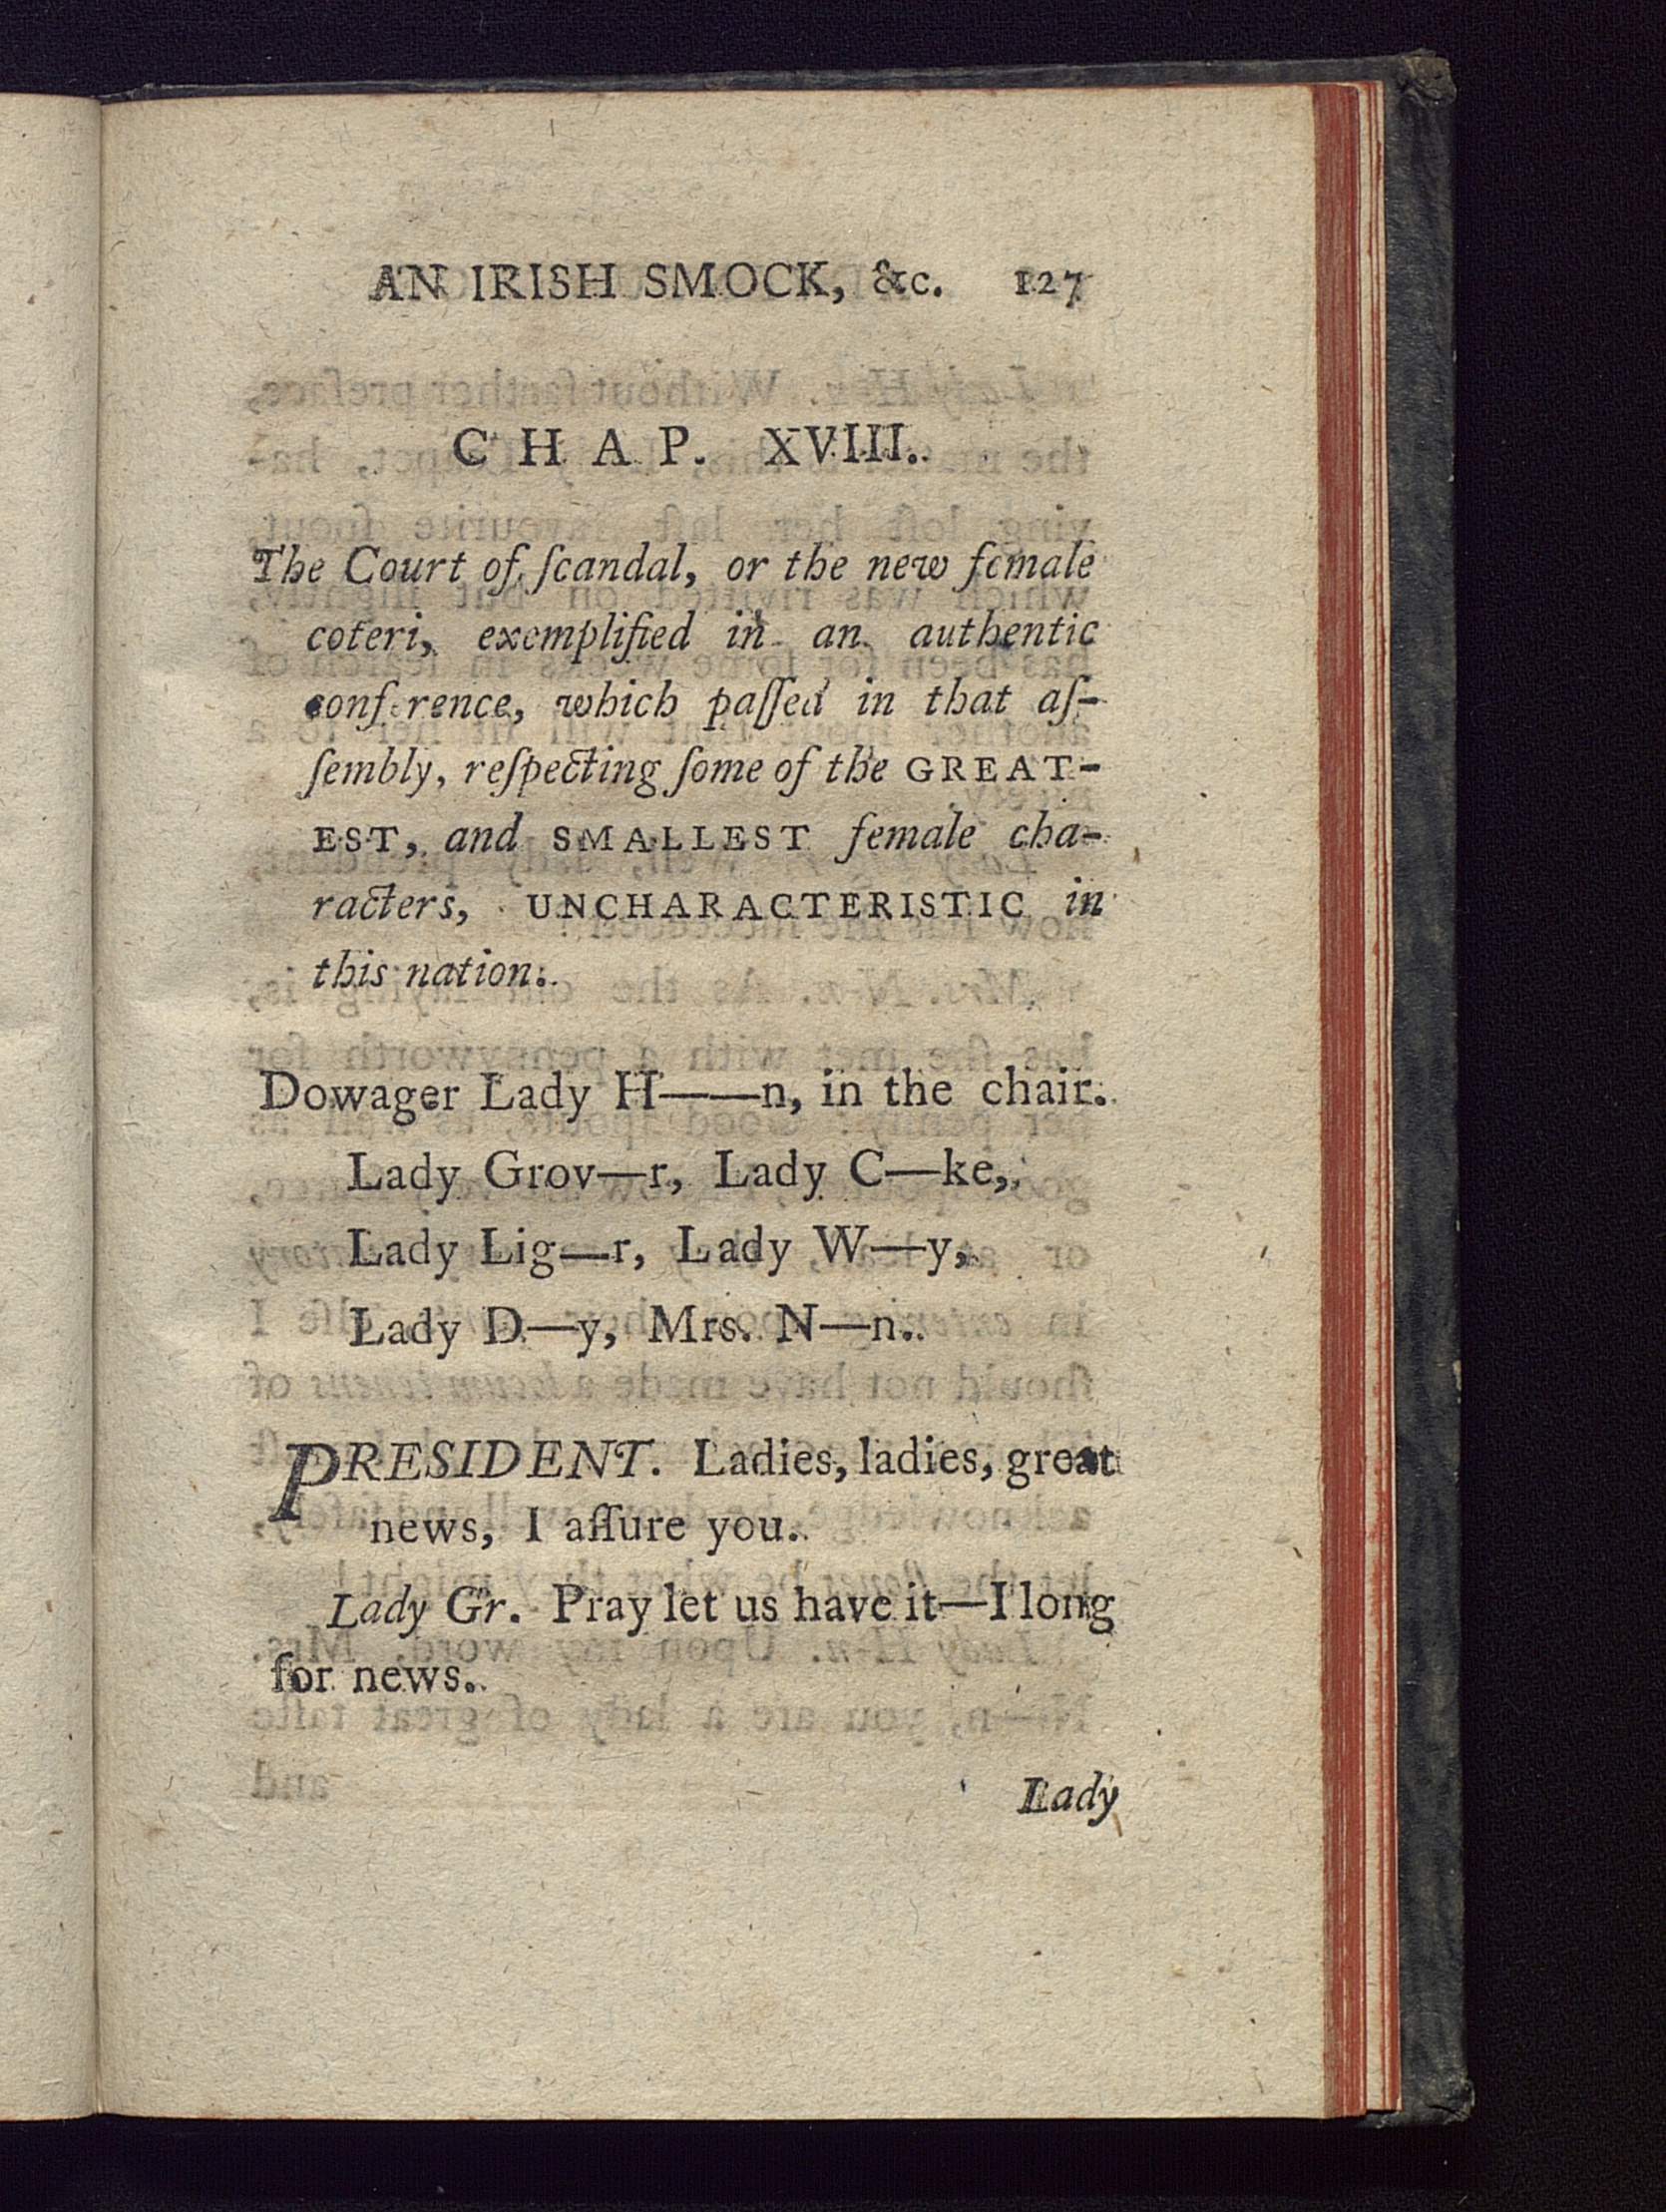 AN IRISH SMOCK, &c. 127
CHAP. XVIII.
The Court of ſcandal, or the new female
coteri, exemplified in an authentic
conference, which paſſed in that aſ-
ſembly, reſpecting ſome of the GREAT-
EST, and SMALLEST female cha-
racters, UNCHARACTERISTIC in
this nation.
Dowager Lady H——n, in the chair.
Lady Grov—r, Lady C—ke,
Lady Lig—r, Lady W—y,
Lady D—y, Mrs. N—n.
PRESIDENT. Ladies, ladies, great
news, I aſſure you.
Lady Gr. Pray let us have it—I long
for news.
Lady